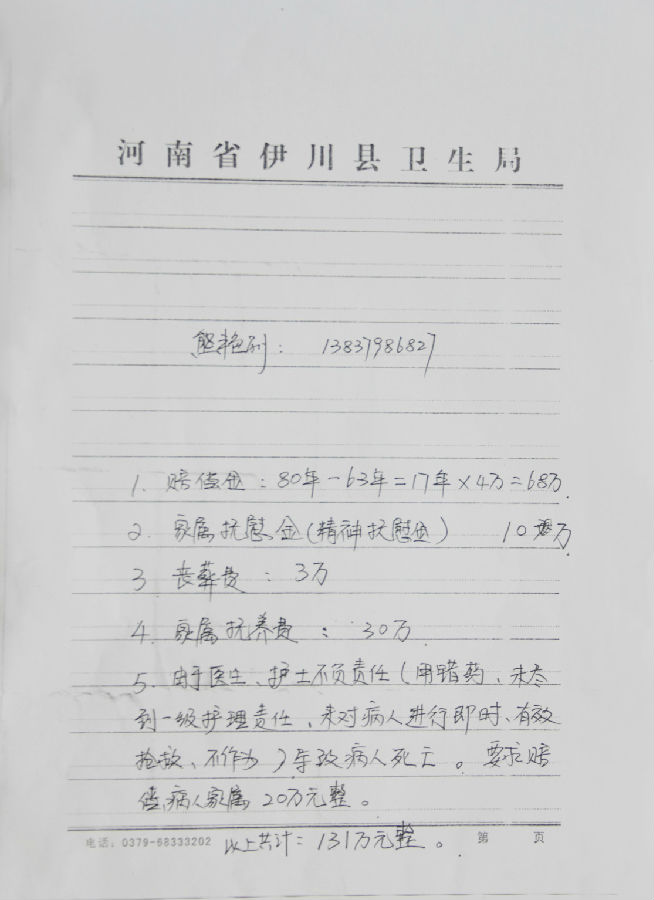 河南省伊川县卫生局
熊艳利: 13837986827
1. 赔偿金: 80年-63年=17年×4万=68万.
2. 家属抚慰金(精神抚慰金) 10万
3 丧葬费: 3万
4. 家属抚养费: 30万.
5. 由于医生、护士不负责任(用错药、未尽
到一级护理责任、未对病人进行即时、有效
抢救、不作为)导致病人死亡。要求赔
偿病人家属20万元整。
电话: 0379-68333202 以上共计: 131万元整。 第 页